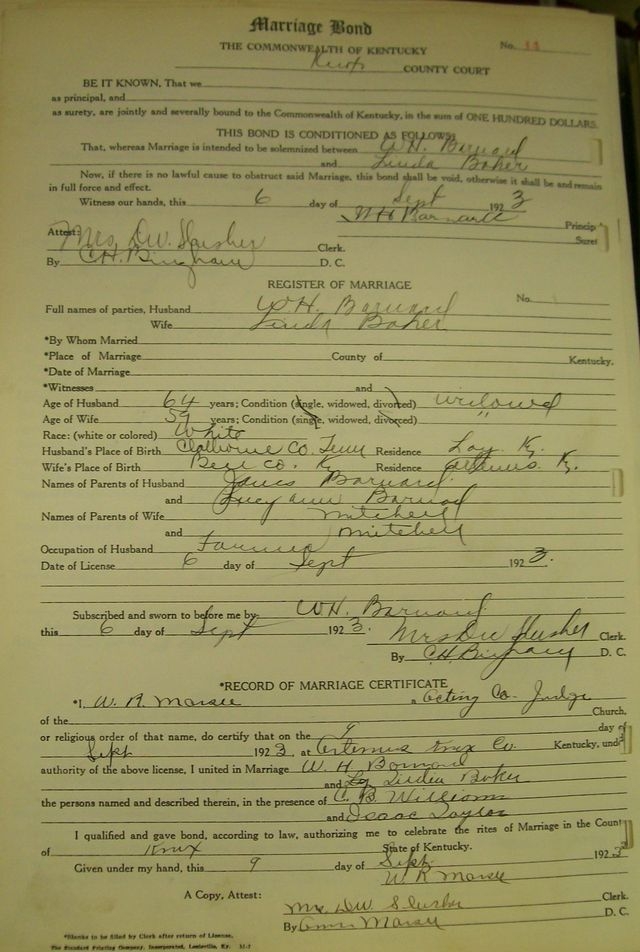 Marriage Bond
THE COMMONWEALTH OF KENTUCKY No. 11
Knox COUNTY COURT
BE IT KNOWN, That we
as principal, and
as surety, are jointly and severally bound to the Commonwealth of Kentucky, in the sum of ONE HUNDRED DOLLARS.
THIS BOND IS CONDITIONED AS FOLLOWS:
That, whereas Marriage is intended to be solemnized between W.H. Barnard
and Linda Baker
Now, if there is no lawful cause to obstruct said Marriage, this bond shall be void, otherwise it shall be and remain
in full force and effect.
Witness our hands, this 6 day of Sept 1923
W H Barnard Princip
Suret
Attest: Mrs. D.W. Slusher Clerk.
By C.H. Bingham D. C.
REGISTER OF MARRIAGE
Full names of parties, Husband W.H. Barnard No.
Wife Linda Baker
*By Whom Married
*Place of Marriage County of Kentucky.
*Date of Marriage
*Witnesses and
Age of Husband 64 years; Condition (single, widowed, divorced) Widowed
Age of Wife 59 years; Condition (single, widowed, divorced) "
Race: (white or colored) White
Husband's Place of Birth Claiborne Co. Tenn Residence Lay Ky.
Wife's Place of Birth Bell Co. Ky Residence Artemus Ky.
Names of Parents of Husband James Barnard
and Lucy ann Barnard
Names of Parents of Wife Mitchell
and Mitchell
Occupation of Husband Farmer
Date of License 6 day of Sept 1923.
Subscribed and sworn to before me by W.H. Barnard
this 6 day of Sept 1923. Mrs D W Slusher Clerk.
By C H Bingham D. C.
*RECORD OF MARRIAGE CERTIFICATE
*I, W. R. a Acting Co. Judge
of the Church,
or religious order of that name, do certify that on the 9 day of
Sept 1923, at Artemus Knox Co. Kentucky, und
authority of the above license, I united in Marriage W. H Barnard
and Linda Baker
the persons named and described therein, in the presence of C. B. Williams
and Isaac Taylor
I qualified and gave bond, according to law, authorizing me to celebrate the rites of Marriage in the Count
of Knox State of Kentucky.
Given under my hand, this 9 day of Sept. 1923
W R
A Copy, Attest: Mrs. D W Slusher Clerk.
By D. C.
*Blanks to be filled by Clerk after return of License.
The Standard Printing Company, Incorporated, Louisville, Ky.